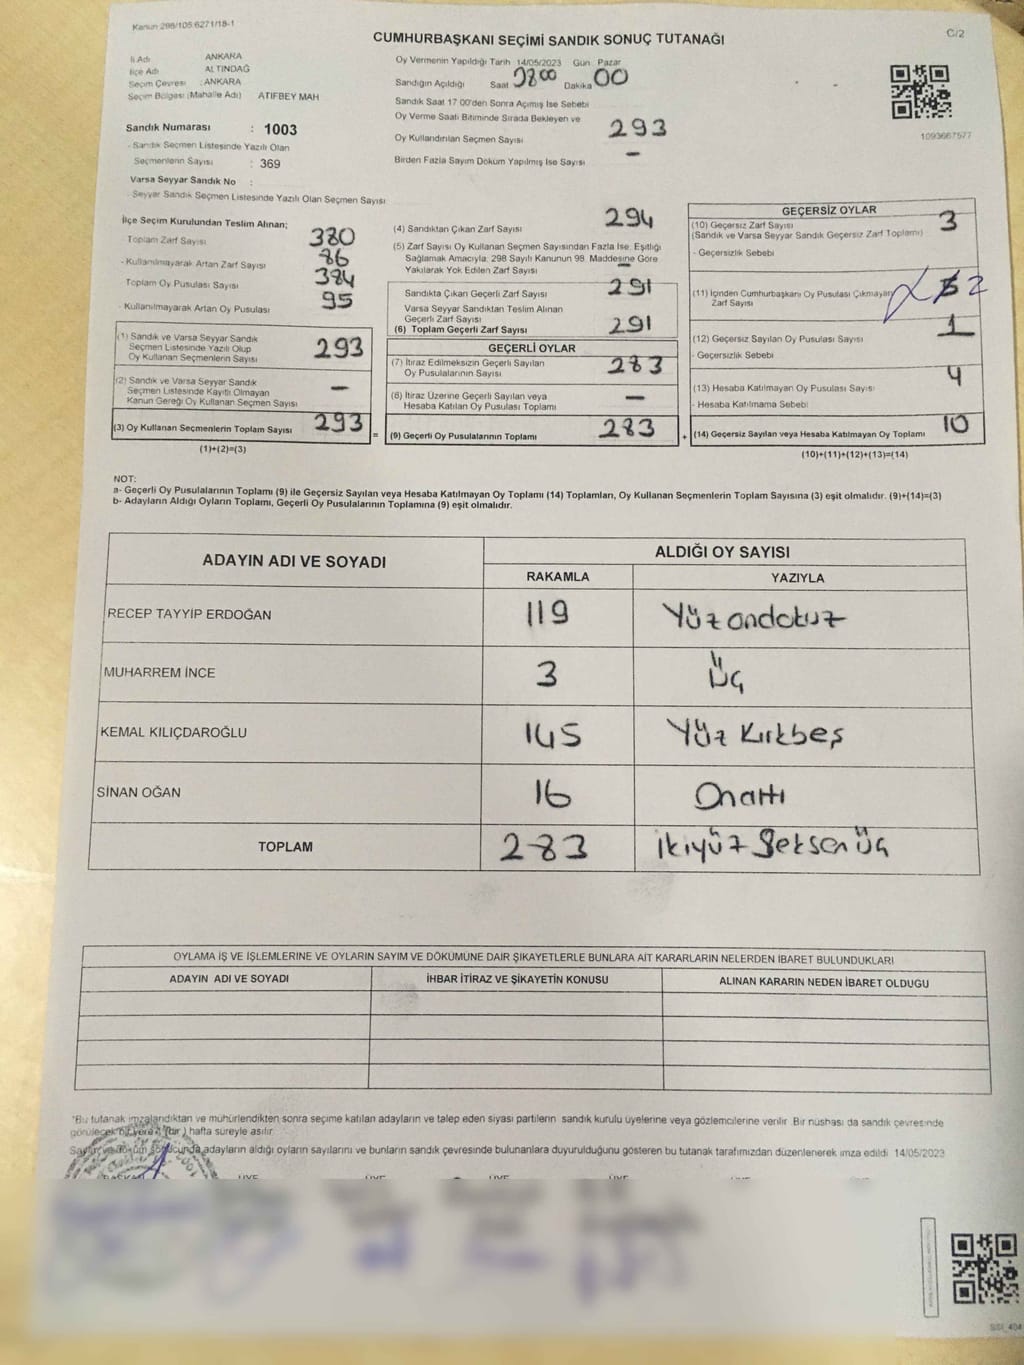 Kanun 298/105.6271/18-1
C/2
CUMHURBAŞKANI SEÇİMİ SANDIK SONUÇ TUTANAĞI
İl Adı ANKARA
İlçe Adı ALTINDAĞ
Seçim Çevresi : ANKARA
Seçim Bölgesi (Mahalle Adı) ATIFBEY MAH
Sandık Numarası : 1003
- Sandık Seçmen Listesinde Yazılı Olan
Seçmenlerin Sayısı : 369
Varsa Seyyar Sandık No :
Seyyar Sandık Seçmen Listesinde Yazılı Olan Seçmen Sayısı
Oy Vermenin Yapıldığı Tarih 14/05/2023 Gün Pazar
Sandığın Açıldığı Saat 0800 Dakika 00
Sandık Saat 17 00'den Sonra Açımış İse Sebebi
Oy Verme Saati Bitiminde Sırada Bekleyen ve
Oy Kullandırılan Seçmen Sayısı 293
Birden Fazla Sayım Döküm Yapılmış İse Sayısı –
1093667577
İlçe Seçim Kurulundan Teslim Alınan;
Toplam Zarf Sayısı 380
- Kullanılmayarak Artan Zarf Sayısı 86
Toplam Oy Pusulası Sayısı 384
- Kullanılmayarak Artan Oy Pusulası 95
(1) Sandık ve Varsa Seyyar Sandık
Seçmen Listesinde Yazılı Olup
Oy Kullanan Seçmenlerin Sayısı 293
(2) Sandık ve Varsa Seyyar Sandık
Seçmen Listesinde Kayıtlı Olmayan
Kanun Gereği Oy Kullanan Seçmen Sayısı –
(3) Oy Kullanan Seçmenlerin Toplam Sayısı 293
(1)+(2)=(3)
=
(4) Sandıktan Çıkan Zarf Sayısı 294
(5) Zarf Sayısı Oy Kullanan Seçmen Sayısından Fazla İse, Eşitliği
Sağlamak Amacıyla, 298 Sayılı Kanunun 98. Maddesine Göre
Yakılarak Yok Edilen Zarf Sayısı –
Sandıkta Çıkan Geçerli Zarf Sayısı 291
Varsa Seyyar Sandıktan Teslim Alınan
Geçerli Zarf Sayısı
(6) Toplam Geçerli Zarf Sayısı 291
GEÇERLİ OYLAR
(7) İtiraz Edilmeksizin Geçerli Sayılan
Oy Pusulalarının Sayısı 283
(8) İtiraz Üzerine Geçerli Sayılan veya
Hesaba Katılan Oy Pusulası Toplamı –
(9) Geçerli Oy Pusulalarının Toplamı 283
+
GEÇERSİZ OYLAR
(10) Geçersiz Zarf Sayısı 3
(Sandık ve Varsa Seyyar Sandık Geçersiz Zarf Toplamı)
- Geçersizlik Sebebi
(11) İçinden Cumhurbaşkanı Oy Pusulası Çıkmayan 2
Zarf Sayısı
(12) Geçersiz Sayılan Oy Pusulası Sayısı 1
- Geçersizlik Sebebi
(13) Hesaba Katılmayan Oy Pusulası Sayısı 4
- Hesaba Katılmama Sebebi
(14) Geçersiz Sayılan veya Hesaba Katılmayan Oy Toplamı 10
(10)+(11)+(12)+(13)=(14)
NOT:
a- Geçerli Oy Pusulalarının Toplamı (9) ile Geçersiz Sayılan veya Hesaba Katılmayan Oy Toplamı (14) Toplamları, Oy Kullanan Seçmenlerin Toplam Sayısına (3) eşit olmalıdır. (9)+(14)=(3)
b- Adayların Aldığı Oyların Toplamı, Geçerli Oy Pusulalarının Toplamına (9) eşit olmalıdır.
ADAYIN ADI VE SOYADI ALDIĞI OY SAYISI
RAKAMLA YAZIYLA
RECEP TAYYİP ERDOĞAN 119 Yüzondokuz
MUHARREM İNCE 3 Üç
KEMAL KILIÇDAROĞLU 145 Yüz Kırkbeş
SİNAN OĞAN 16 Onaltı
TOPLAM 283 İkiyüz Seksen Üç
OYLAMA İŞ VE İŞLEMLERİNE VE OYLARIN SAYIM VE DÖKÜMÜNE DAİR ŞİKAYETLERLE BUNLARA AİT KARARLARIN NELERDEN İBARET BULUNDUKLARI
ADAYIN ADI VE SOYADI İHBAR İTİRAZ VE ŞİKAYETİN KONUSU ALINAN KARARIN NEDEN İBARET OLDUĞU
*Bu tutanak imzalandıktan ve mühürlendikten sonra seçime katılan adayların ve talep eden siyasi partilerin sandık kurulu üyelerine veya gözlemcilerine verilir. Bir nüshası da sandık çevresinde
görülecek bir yere 1 (bir) hafta süreyle asılır.
Sayım ve döküm sonucunda adayların aldığı oyların sayılarını ve bunların sandık çevresinde bulunanlara duyurulduğunu gösteren bu tutanak tarafımızdan düzenlenerek imza edildi 14/05/2023
BAŞKAN ÜYE ÜYE ÜYE ÜYE